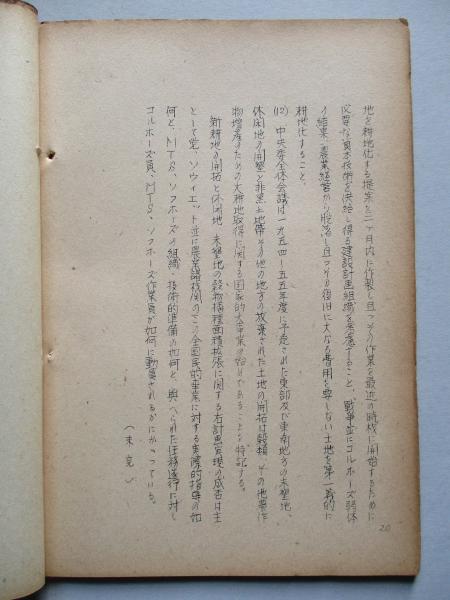 地を耕地化する提案を二ヶ月内に作製し且つその作業を最近の時機に開始するために
必要な資本技術を供給し得る建設計画組織を考慮すること、戦争並にコルホーズ弱体
の結果、農業経営から脱落し且つその復旧に大なる費用を要しない土地を第一義的に
耕地化すること、
(12) 中央委全体会議は一九五四—五五年度に予定された東部及び東南地方の未墾地、
休閑地の開墾と非黒土地帯その他の地方の放棄された土地の開拓は穀類、その他農作
物増産のための大耕地取得に関する国家的大事業の始めであることを特記する。
新耕地の開拓と休閑地、未墾地の穀物播種面積拡張に関する右計画実現の成否は主
として党、ソヴィエット並に農業諸機関のこの全国民的事業に対する実際的指導の如
何と、MTS、ソフホーズの組織・技術的準備の如何と、与へられた任務遂行に対し
コルホーズ員、MTS、ソフホーズ作業員が如何に動員されるかにかかっている。
(未完)
20